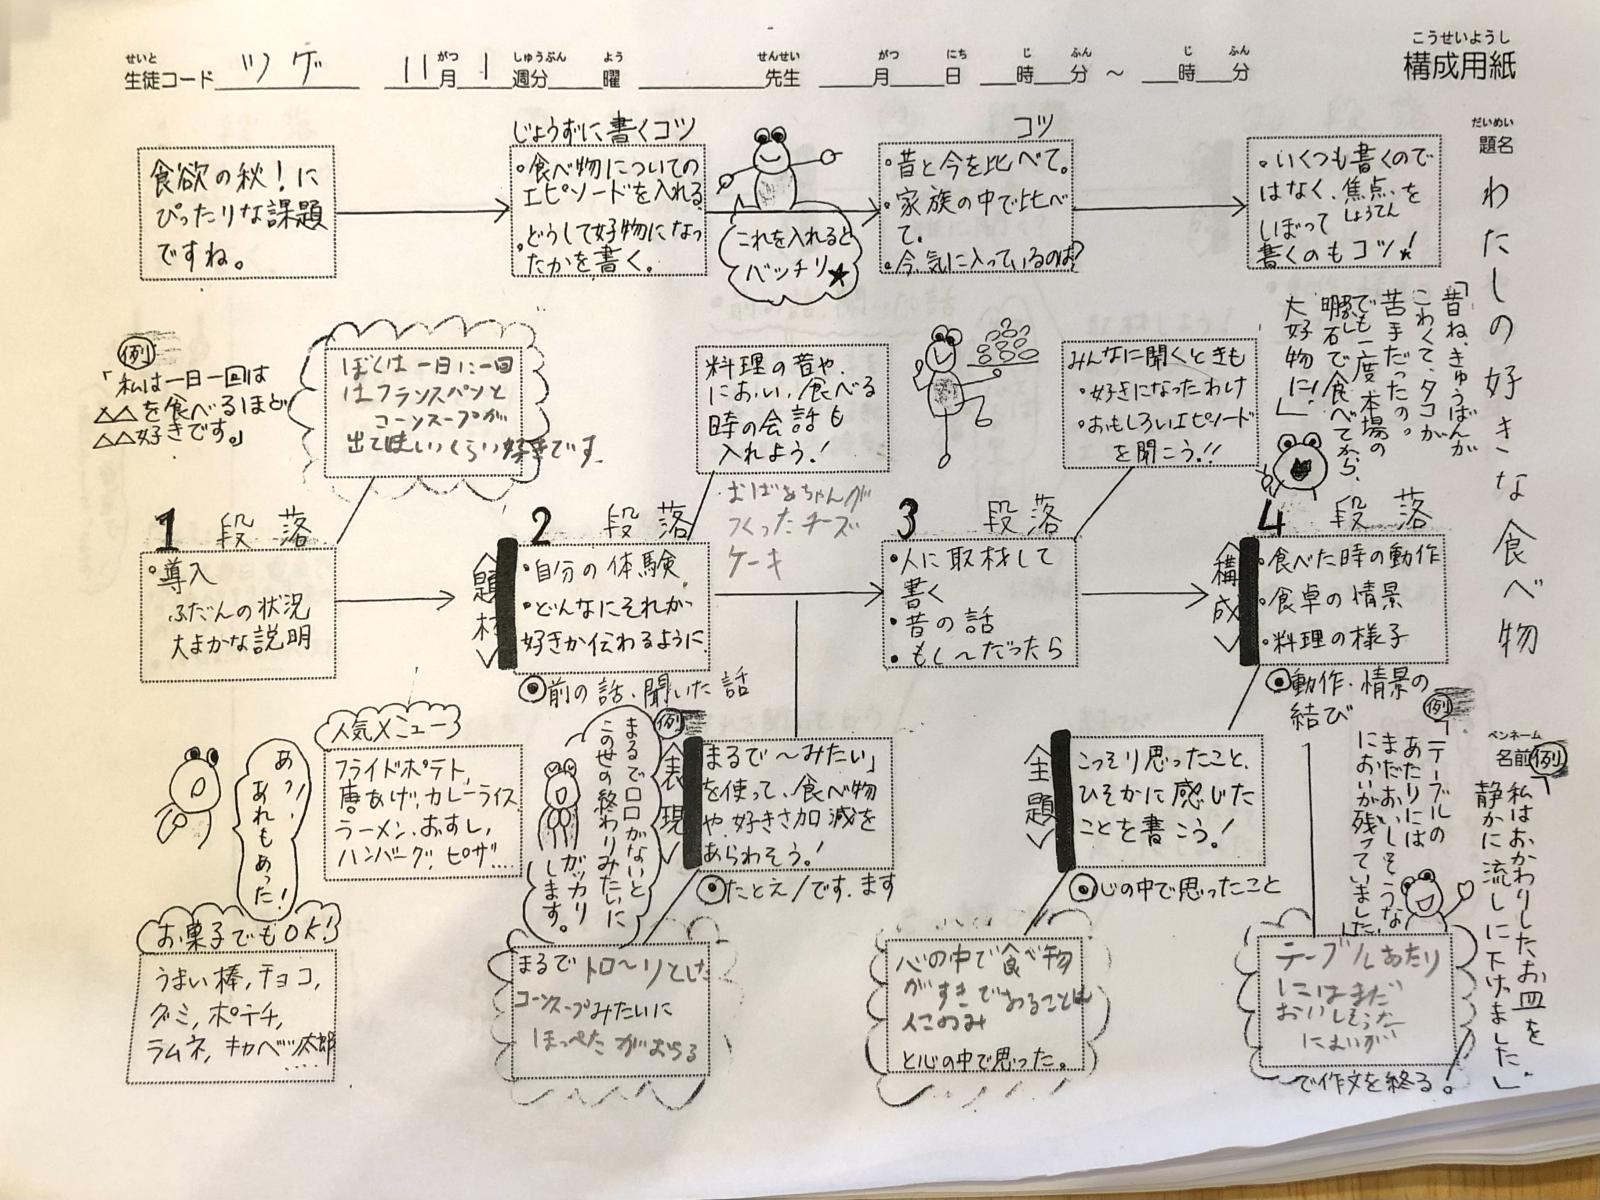 せいと がつ しゅうぶん よう せんせい がつ にち じ ふん じ ふん
生徒コード ツゲ 11月 1週分 曜 先生 月 日 時 分 ～ 時 分
こうせいようし
構成用紙
だいめい
題名
わたしの好きな食べ物
ペンネーム
名前
食欲の秋！に
ぴったりな課題
ですね。
じょうずに書くコツ
・食べ物についての
エピソードを入れる
・どうして好物になっ
たかを書く。
これを入れると
バッチリ★
コツ
・昔と今を比べて。
・家族の中で比べ
て。
・今、気に入っているのは？
・いくつも書くので
はなく、焦点を
しょうてん
しぼって
書くのもコツ！
例
「私は一日一回は
△△を食べるほど
△△好きです。」
ぼくは一日に一回
はフランスパンと
コーンスープが
出てほしいくらい好きです。
料理の音や、
におい、食べる
時の会話も
入れよう！
おばあちゃんが
つくったチーズ
ケーキ
みんなに聞くときも
・好きになったわけ
・おもしろいエピソード
を聞こう!!
「昔ね、きゅうばんが
こわくて、タコが
苦手だったの。
でも一度本場の
明石で食べてから、
大好物に！」
1段落
・導入
ふだんの状況
大まかな説明
2段落
〈題材〉
・自分の体験
・どんなにそれが
好きか伝わるように
◉前の話・聞いた話
3段落
・人に取材して
書く
・昔の話
・もし～だったら
4段落
〈構成〉
・食べた時の動作
・食卓の情景
・料理の様子
◉動作・情景の
結び
あっ、
あれもあった！
人気メニュー
フライドポテト、
唐あげ、カレーライス
ラーメン、おすし、
ハンバーグ、ピザ….
お菓子でもOK！
うまい棒、チョコ、
グミ、ポテチ、
ラムネ、キャベツ太郎
.....
例
まるで口口がないと
この世の終わりみたいに
ガッカリ
します。
〈表現〉
「まるで～みたい」
を使って、食べ物
や、好きさ加減を
あらわそう！
◉たとえ/です.ます
まるでトロ～リとした
コーンスープみたいに
ほっぺたがおちる
〈主題〉
こっそり思ったこと、
ひそかに感じた
ことを書こう！
◉心の中で思ったこと
心の中で食べ物
がすきであることは
人このみ
と心の中で思った。
例
「テーブルの
あたりには
まだおいしそうな
においが残っていました」
テーブルあたり
にはまだ
おいしそうな
においが
で作文を終る。
例
「私はおかわりしたお皿を
静かに流しに下げました」